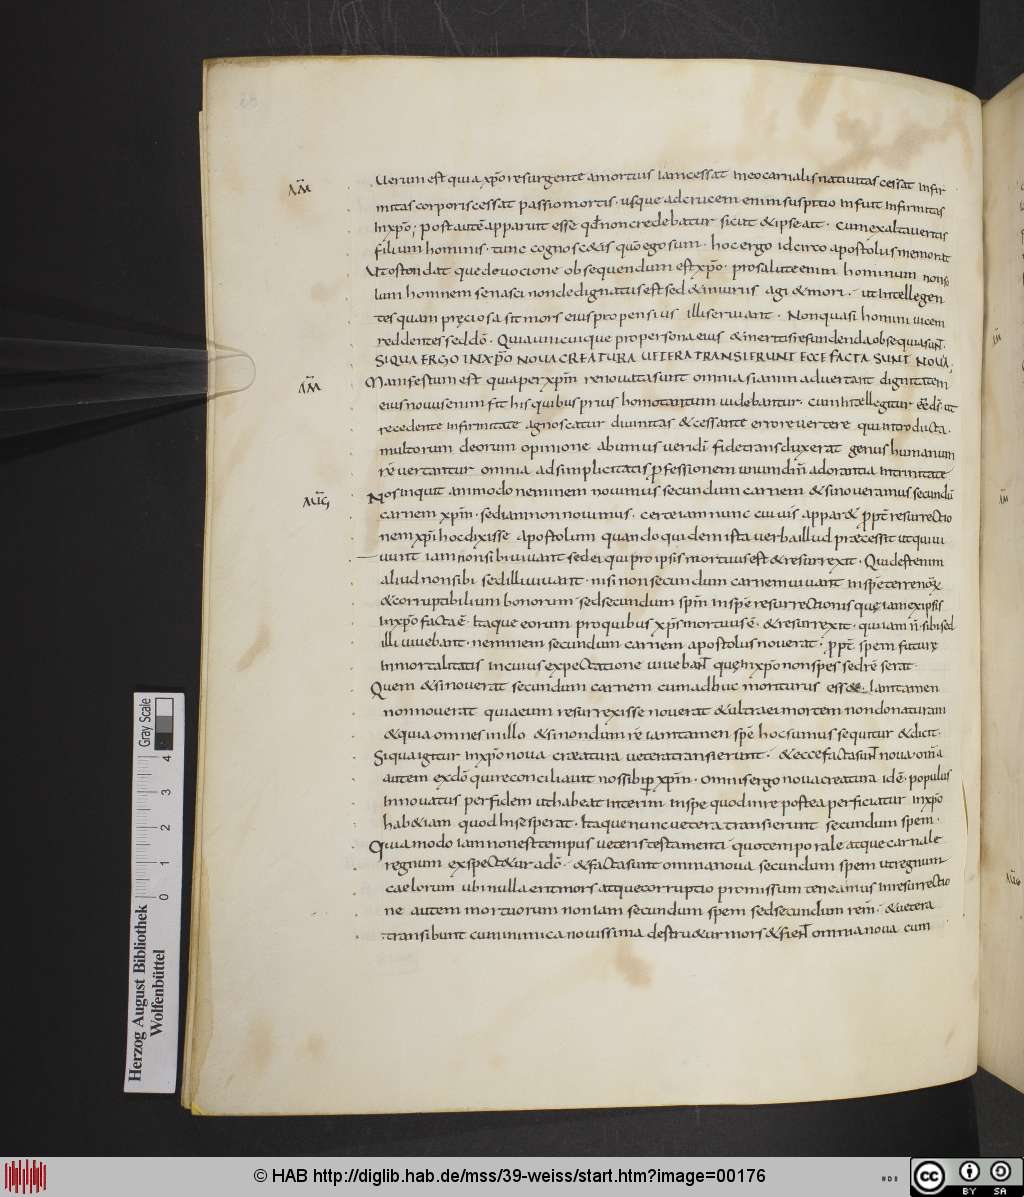 Uerum est quia xpo resurgente a mortuis iam cessat in eo carnalis nativitas cessat infir
AM
mitas corporis cessat passio mortis. usque ad crucem enim suspitio in fuit infirmitas
In xpo; post autē apparuit esse qđ non credebatur sicut & ipse ait. cum exaltaveritis
filium hominis. tunc cognosc&is qm̄ ego sum. hoc ergo idcirco apostolus memorat
Ut ostendat que devocione obsequendum est xpo. pro salute enim hominum non so
lum hominem se nasci non dedignatus est sed & iniuriis agi & mori. ut intellegen
tes quam pręciosa sit mors eius propensius illi serviant. Non quasi homini vicem
reddentes sed dō. Quia unicuique pro persona eius & meritis refundenda obsequia suƞ.
SI QUA ERGO IN XPO NOVA CREATURA UETERA TRANSIERUNT ECCE FACTA SUNT NOVA;
AM
Manifestum est quia per xpm renovata sunt omnia si animadvertant dignitatem
eius novus enim fit his quibus prius homo tantum videbatur. cum intellegitur eē dī ut
recedente infirmitate agnoscatur divinitas & cessante errore vertere qui introducta
multorum deorum opinione ab unius veri dī fide transduxerat genus humanum
revertantur omnia ad simplicitatis professionem unum dm̄ adorantia in trinitate
AUG
Nos inquit ammodo neminem novimus secundum carnem & si noveramus secundū
carnem xpm. sed iam non novimus. certe iam nunc cuivis appar& ꝓpt resurrectio
nem xpi hoc dixisse apostolum quando quidem ista verba illud præcessit ut qui vi
vunt iam non sibi vivant sed ei qui pro ipsis mortuus est & resurrexit. Quid est enim
aliud non sibi sed illi vivant. nisi non secundum carnem vivant in spe terrenoꝝ
& corruptibilium bonorum sed secundum spm in spe resurrectionis quę iam ex ipsis
In xpo facta ē. Itaque eorum pro quibus xps mortuus ē. & resurrexit. qui iam ñ sibi sed
illi vivebant. neminem secundum carnem apostolus noverat. ꝓpt spem futurę
inmortalitatis in cuius expectatione vivebanƞ quę in xpo non spes sed rē serat.
Quem & si noverat secundum carnem cum adhuc moriturus esse. Iam tamen
non noverat quia eum resurrexisse noverat & ultra ei mortem non donaturam
& quia omnes in illo & si nondum re iam tamen spe hoc sumus sequitur & dicit.
Si qua igitur in xpo nova creatura vetera transierunt. & ecce facta sunƞ nova. omīa
autem ex dō qui reconciliavit nos sibi ꝑ xpm. Omnis ergo nova creatura id ē. populus
Innovatus per fidem ut habeat interim in spe quod in re postea perficiatur in xpo
hab& iam quod in se sperat. Itaque nunc vetera transierunt secundum spem.
Quia modo iam non est tempus veteris testamenti quo temporale atque carnale
regnum expect&ur a dō. & facta sunt omnia nova secundum spem ut regnum
caelorum ubi nulla erit mors atque corruptio promissum teneamus in resurrectio
ne autem mortuorum non iam secundum spem sed secundum rem. & vetera
transibunt cum inimica novissima destru&ur mors & fienƞ omnia nova cum
Gray Scale
0 1 2 3 4
Herzog August Bibliothek
Wolfenbüttel
© HAB http://diglib.hab.de/mss/39-weiss/start.htm?image=00176
cc BY SA